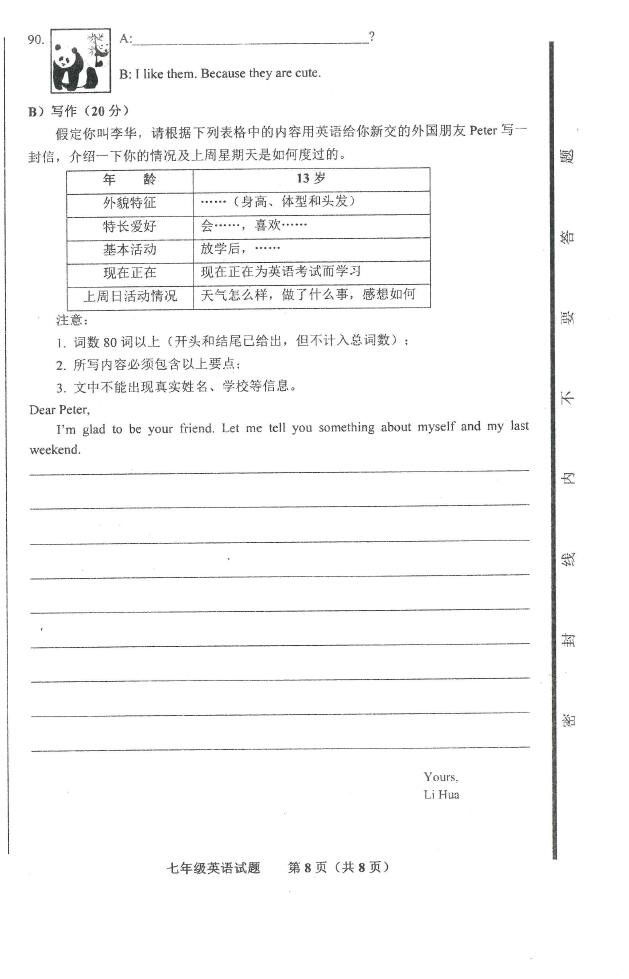 90.
A:________________________________?
B: I like them. Because they are cute.
B）写作（20 分）
假定你叫李华，请根据下列表格中的内容用英语给你新交的外国朋友 Peter 写一
封信，介绍一下你的情况及上周星期天是如何度过的。
年 龄 13 岁
外貌特征 ……（身高、体型和头发）
特长爱好 会……，喜欢……
基本活动 放学后，……
现在正在 现在正在为英语考试而学习
上周日活动情况 天气怎么样，做了什么事，感想如何
注意：
1. 词数 80 词以上（开头和结尾已给出，但不计入总词数）；
2. 所写内容必须包含以上要点；
3. 文中不能出现真实姓名、学校等信息。
Dear Peter,
I'm glad to be your friend. Let me tell you something about myself and my last
weekend.
Yours,
Li Hua
七年级英语试题 第 8 页（共 8 页）
密 封 线 内 不 要 答 题